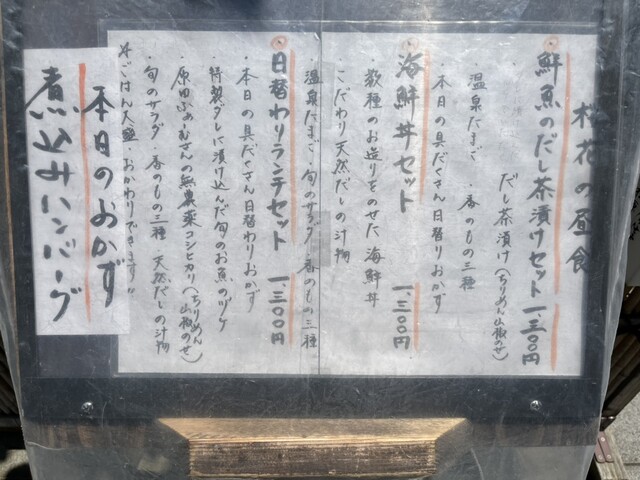 桜花の昼食
鮮魚のだし茶漬けセット 一、三〇〇円
だし茶漬け(ちりめん山椒のせ)
温泉たまご ・香のもの三種
・本日の具だくさん日替りおかず
海鮮丼セット 一、三〇〇円
・数種のお造りをのせた海鮮丼
・こだわり天然だしの汁物
・温泉たまご・旬のサラダ・香のもの三種
日替わりランチセット 一、三〇〇円
・本日の具だくさん日替わりおかず
・特製ダレに漬け込んだ旬のお魚のヅケ
・原田ふぁーむさんの無農薬コシヒカリ(ちりめん山椒のせ)
・旬のサラダ・香のもの三種 天然だしの汁物
ごはん大盛、おかわりできます!!
本日のおかず
煮込みハンバーグ